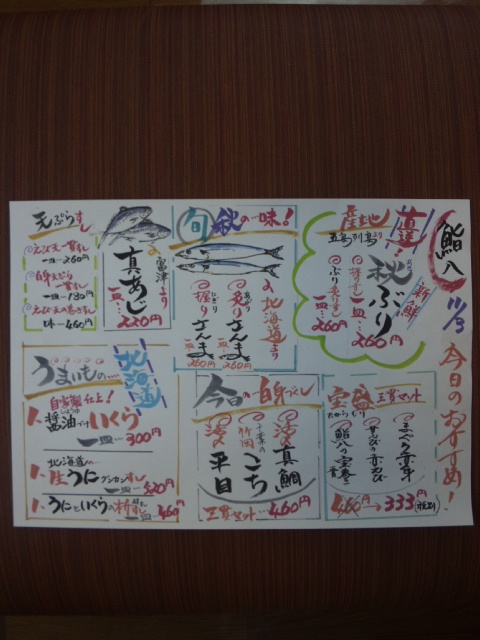 鮨八
11/3
今日のおすすめ!
産地
直送!
五島列島より
新鮮
秋ぶり
一皿…260円
260円
旬
秋の味!
北海道より
炙りさんま
一皿260円
握りさんま
一皿260円
富津より
真あじ
一皿…220円
天ぷらすし
えび天一貫すし
一皿…260円
一皿…180円
一本…460円
宝盛
三貫セット
まぐろ赤身
鮨八の宝巻
460円→333円(税別)
今日の白身づくし
活〆真鯛
千葉の竹岡こち
活〆平目
三貫セット…460円
うまいもの…
北海道
自家製仕上!
醤油づけいくら
一皿…300円
北海道の…
生うに
一皿…520円
うにといくらの
一皿 460円